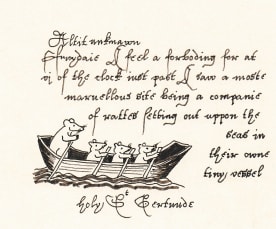 Altit unknawn
Frydaie I feel a forboding for at
vj of the clock iust past I saw a moste
marvellous site being a companie
of rattes setting out uppon the
seas in
their owne
tiny vessel
holy St Gertrude